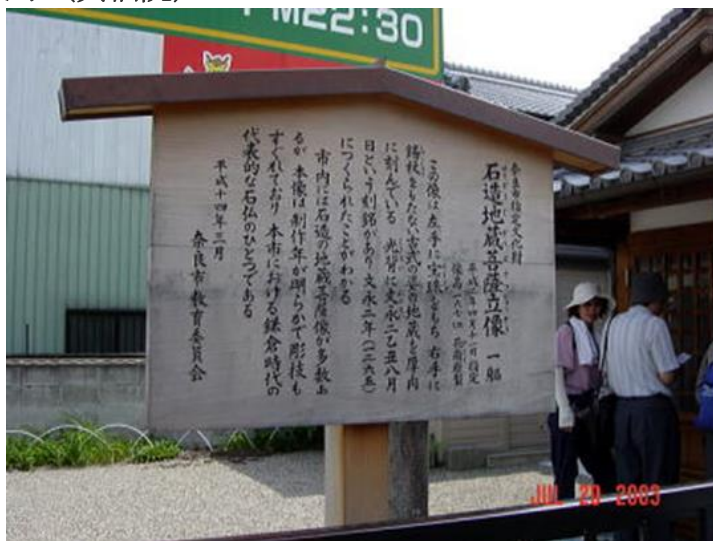 PM22:30
奈良市指定文化財
石造地蔵菩薩立像 一躯
平成
指定
像高一八七
花崗岩製
この像は左手に宝珠をもち 右手に
錫杖をもたない古式の姿の地蔵を厚肉
に刻んでいる 光背に文永二乙丑八月
日という刻銘があり文永二年(一二六五)
につくられたことがわかる
市内には石造の地蔵菩薩像が多数あ
るが 本像は制作年が明らかで彫技も
すぐれており 本市における鎌倉時代の
代表的な石仏のひとつである
平成十四年三月
奈良市教育委員会
JUL 20 2003